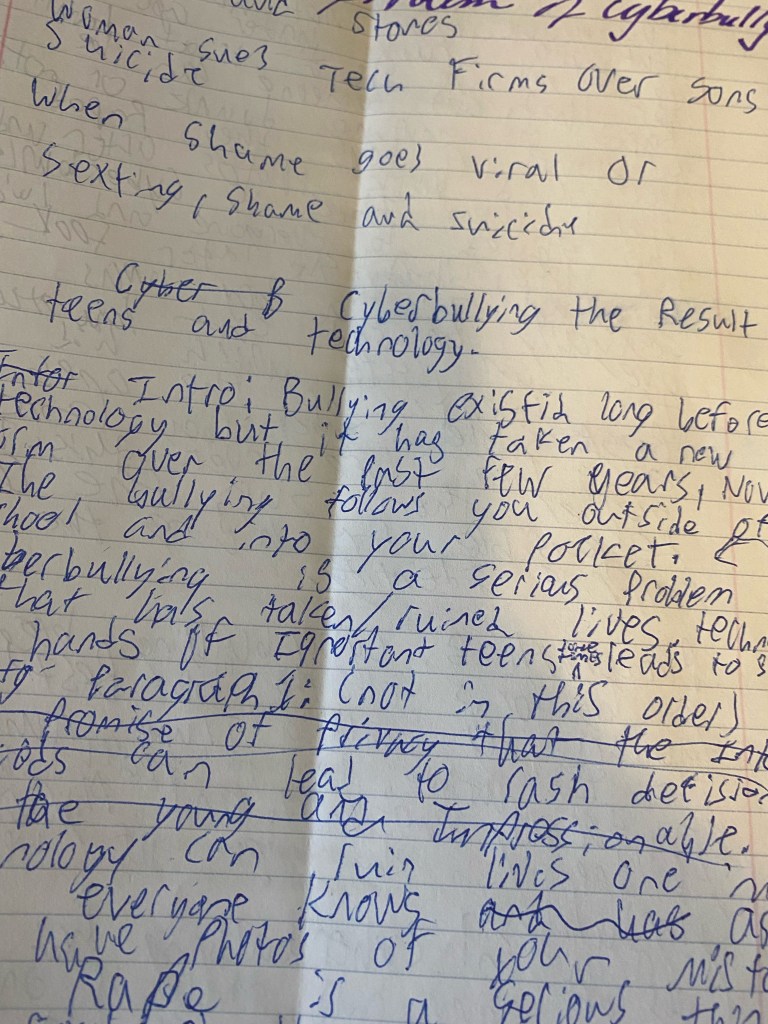 and Problem of Cyberbully
Stores
Woman sues Tech Firms over sons
Suicide
When shame goes viral or
Sexting, shame and suicide
Cyber B Cyberbullying the Result
teens and technology.
Intro: Bullying existid long before
technology but it has taken a new
over the last few years, Nov
The bullying follows you outside of
and into your pocket.
berbullying is a serious problem
that has taken/ruined lives. techn
hands of Ignortant teens leads to s
Paragraph 1: (not in this order)
Promise of privacy that the Inte
can lead to rash decision
the young and Impressionable.
nology can ruin lives one m
everyone knows and has as
have photos of your mist
Rape is a serious thin